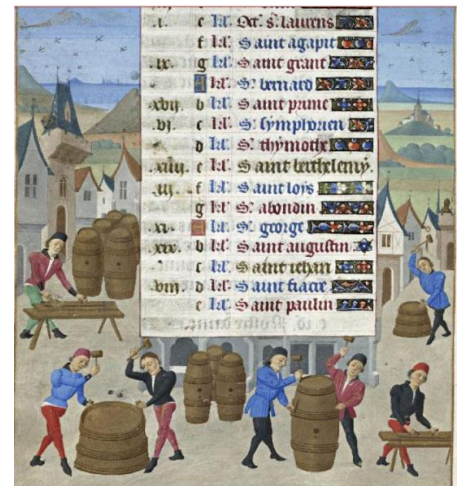 .i. e kl' Oct. s. laurens
f kl' Saint agapit
.ix. g kl' Saint grant
A kl' S. bernard
.xvij. b kl' Saint prime
.vj. c kl' S. symphorien
d kl' S. thymothe
.xiiij. e kl' Saint berthelemy.
.iij. f kl' Saint loys
g kl' S. abondin
.xi. A kl' S. george
.xix. b kl' Saint augustin
c kl' Saint iehan
.viij. d kl' Saint fiacre
e kl' Saint paulin